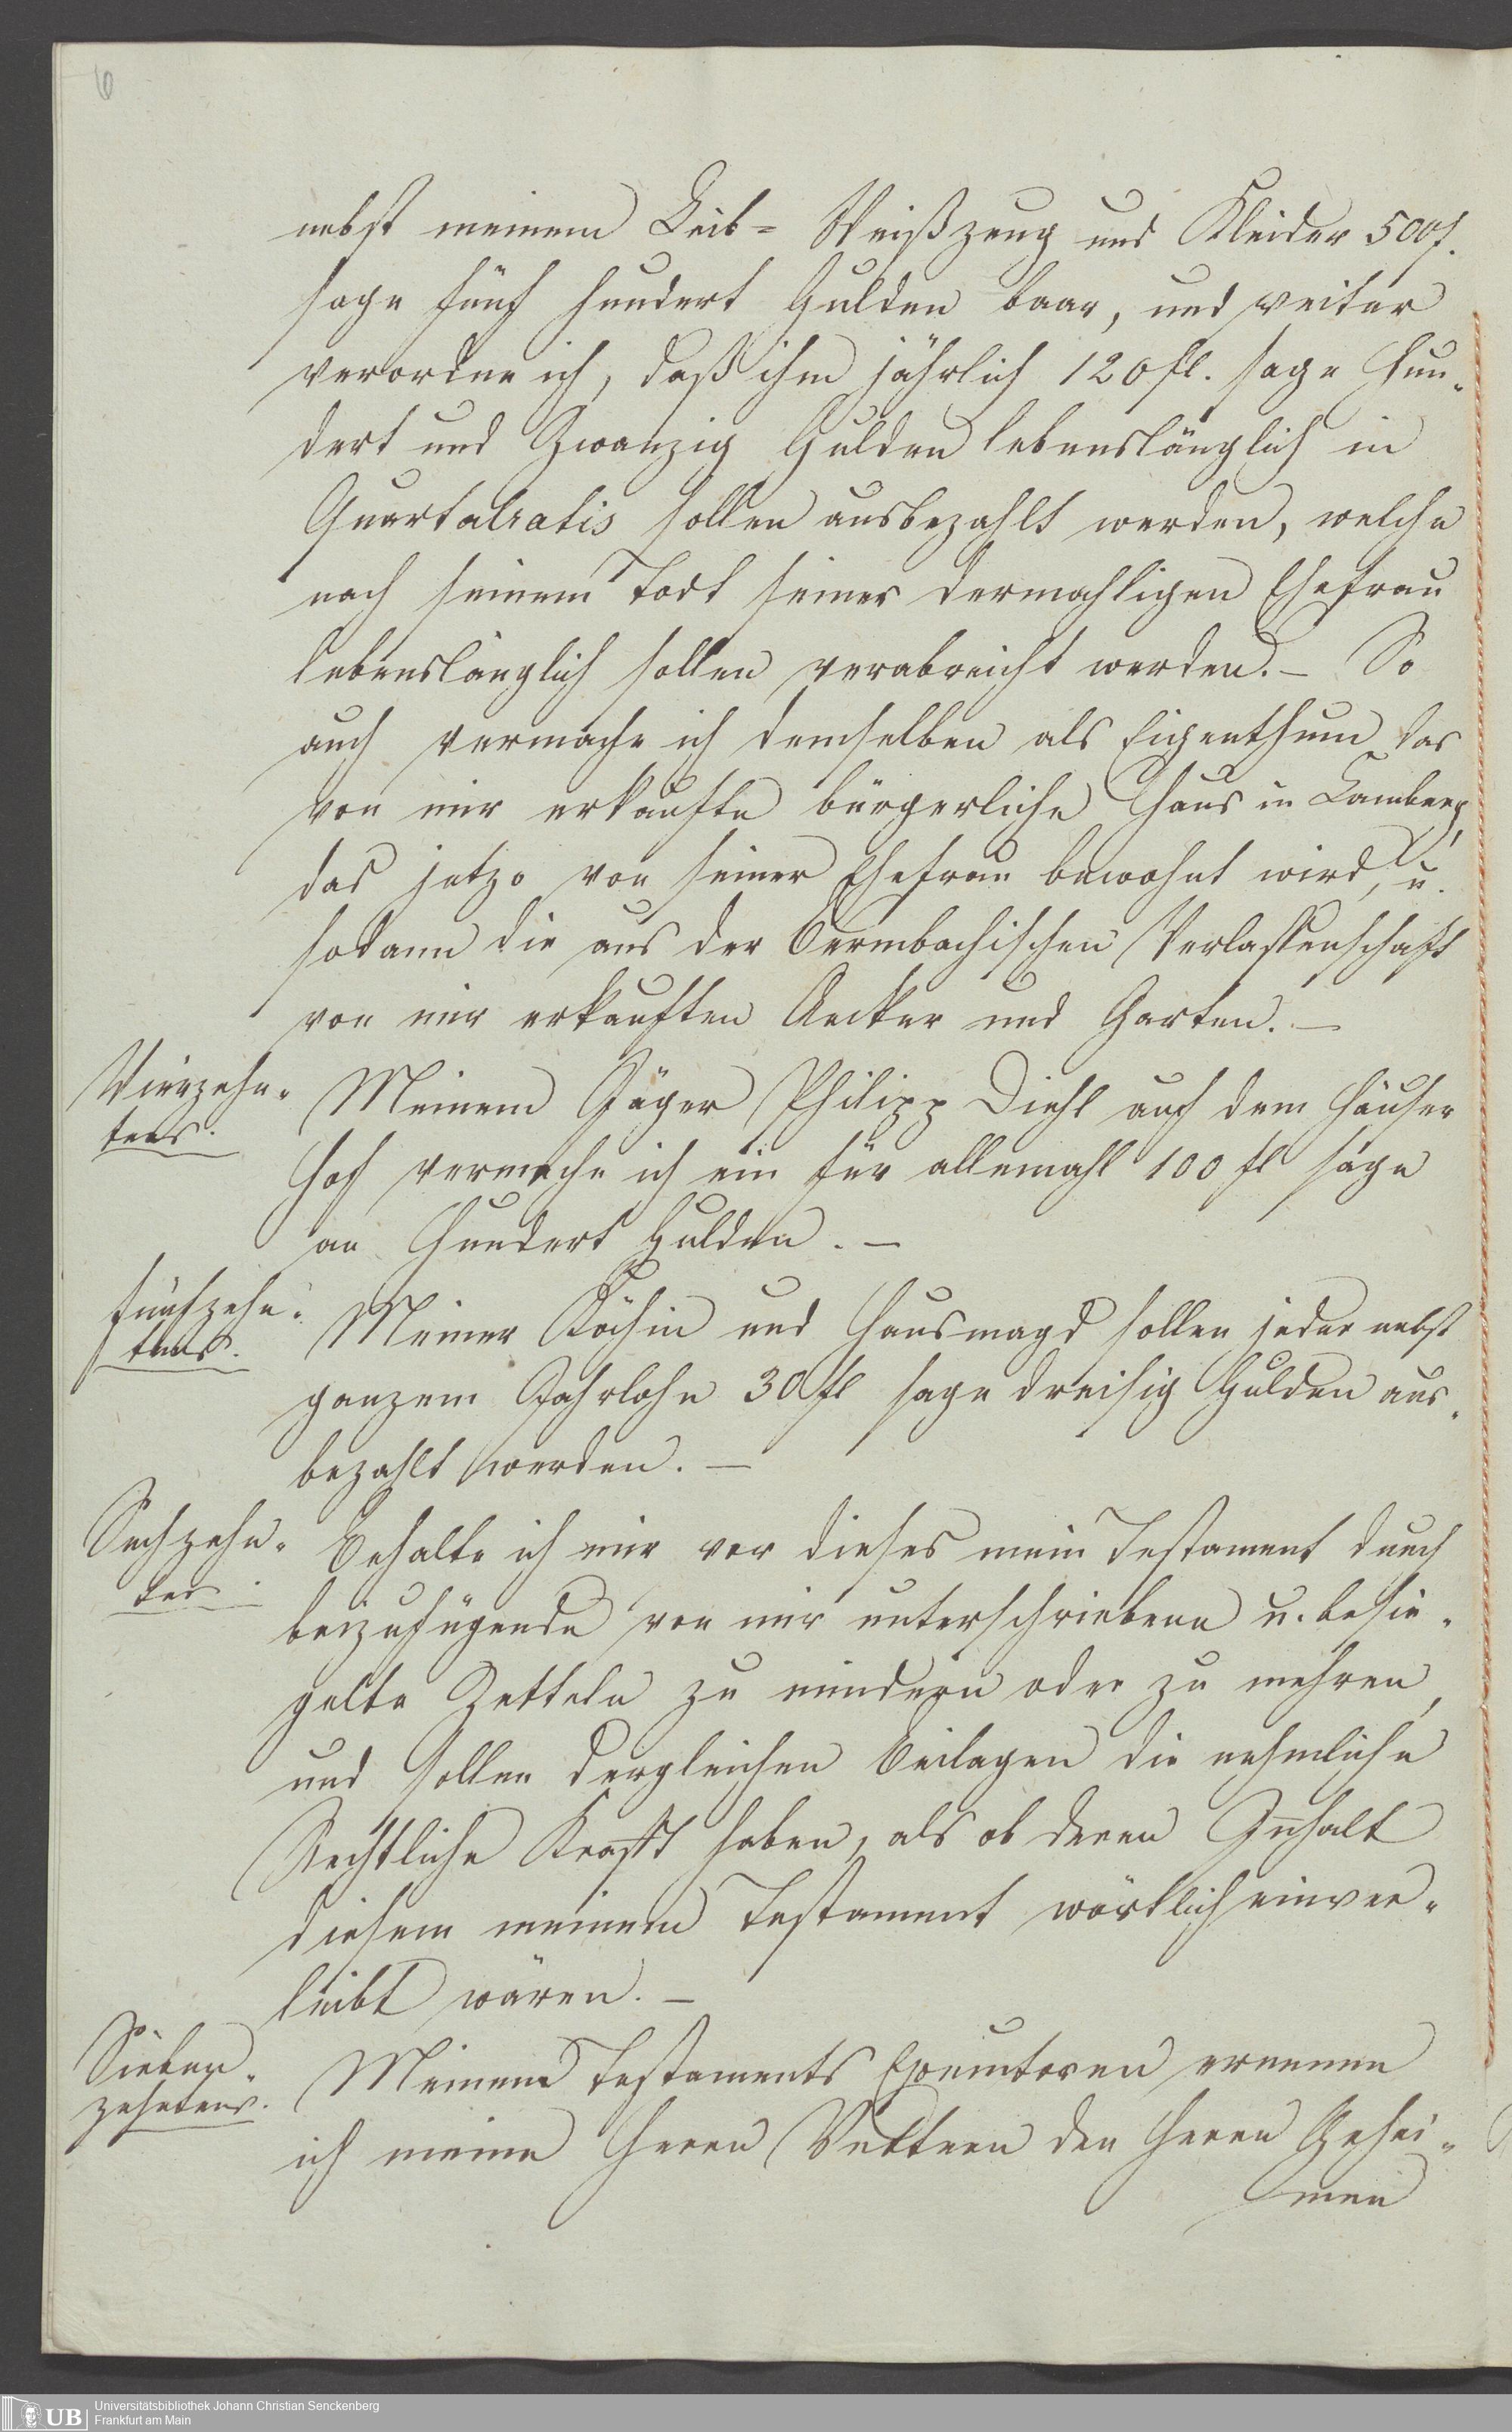 6
nebst meinem Leib= Weißzeug und Kleider 500f.
sage fünf hundert Gulden baar, und weiter
verordne ich, daß ihm jährlich 120 fl. sage Hun-
dert und Zwanzig Gulden lebenslänglich in
Quartalratis sollen ausbezahlt werden, welche
nach seinem Todt seiner dermahligen Ehefrau
lebenslänglich sollen verabreicht werden. – So
auch vermache ich demselben als Eigenthum das
von mir erkaufte bürgerliche Haus in Camberg,
das jetzo von seiner Ehefrau bewohnt wird, u.
sodann die aus der Bermbachischen Verlassenschaft
von mir erkauften Aecker und Garten. –
Vierzehn-
tens.
Meinem Jäger Philipp Diehl auf dem Häuser
Hof vermache ich ein für allemahl 100 fl sage
an Hundert Gulden. –
Fünfzehn-
tens.
Meiner Köchin und Hausmagd sollen jeder nebst
ganzem Jahrlohn 30 fl sage dreisig Gulden aus-
bezahlt werden. –
Sechzehn-
tens.
Behalte ich mir vor dieses mein Testament durch
beizufügende von mir unterschriebene u. besie-
gelte Zetteln zu mindern oder zu mehren,
und sollen dergleichen Beilagen die nehmliche
Rechtliche Krafft haben, als ob deren Innhalt
diesem meinem Testament wörtlich einver-
leibt wären. –
Sieben-
zehntens.
Meinem Testaments Executoren ernenne
ich meine Herrn Vettern den Herrn Gehei-
men
UB
Universitätsbibliothek Johann Christian Senckenberg
Frankfurt am Main